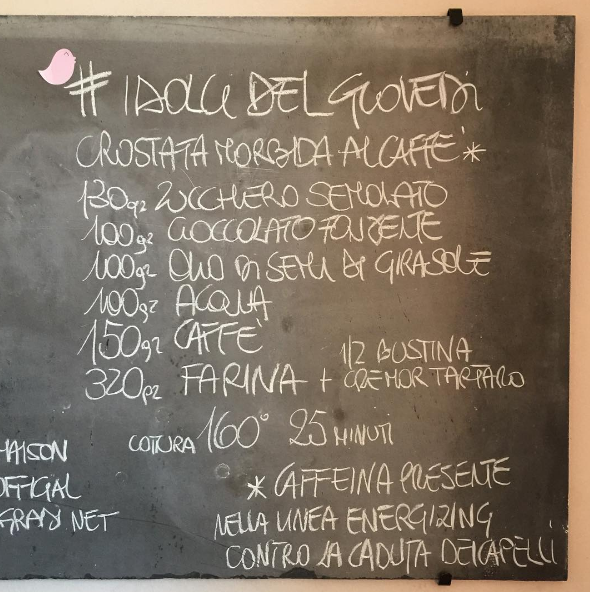 # I DOLCI DEL GIOVEDÌ
CROSTATA MORBIDA AL CAFFE' *
130gr ZUCCHERO SEMOLATO
100gr CIOCCOLATO FONDENTE
100gr OLIO DI SEMI DI GIRASOLE
100gr ACQUA
150gr CAFFE'
1/2 BUSTINA
320gr FARINA + CREMOR TARTARO
COTTURA 160° 25 MINUTI
MAISON
OFFICIAL
NET
* CAFFEINA PRESENTE
NELLA LINEA ENERGIZING
CONTRO LA CADUTA DEI CAPELLI